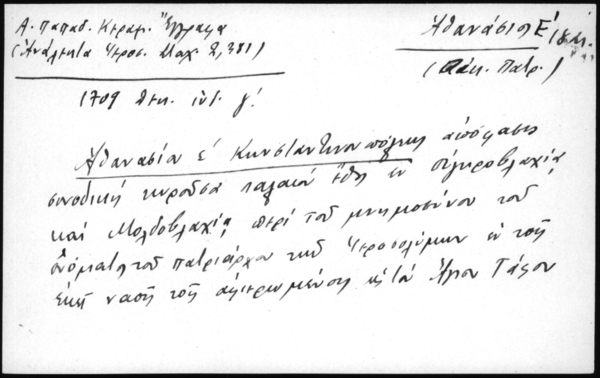 Α. Παπαδ. Κεραμ. Ἔγγραφα
(Ἀνάλεκτα Ἱεροσ. Σταχ. 2, 381)
Ἀθανάσιος Ε΄
(Οἰκ. Πατρ.)
1709 Δεκ. ἰνδ. γ΄.
Ἀθανασίου Ε΄ Κωνσταντινουπόλεως ἀπόφασις
συνοδική κυροῦσα παλαιά ἔθη ἐν Οὑγκροβλαχίᾳ
καί Μολδοβλαχίᾳ περί τοῦ μνημοσύνου τοῦ
ὀνόματος τοῦ πατριάρχου τῶν Ἱεροσολύμων ἐν τοῖς
ἐκεῖ ναοῖς τοῖς ἀφιερωμένοις εἰς τόν Ἅγιον Τάφον